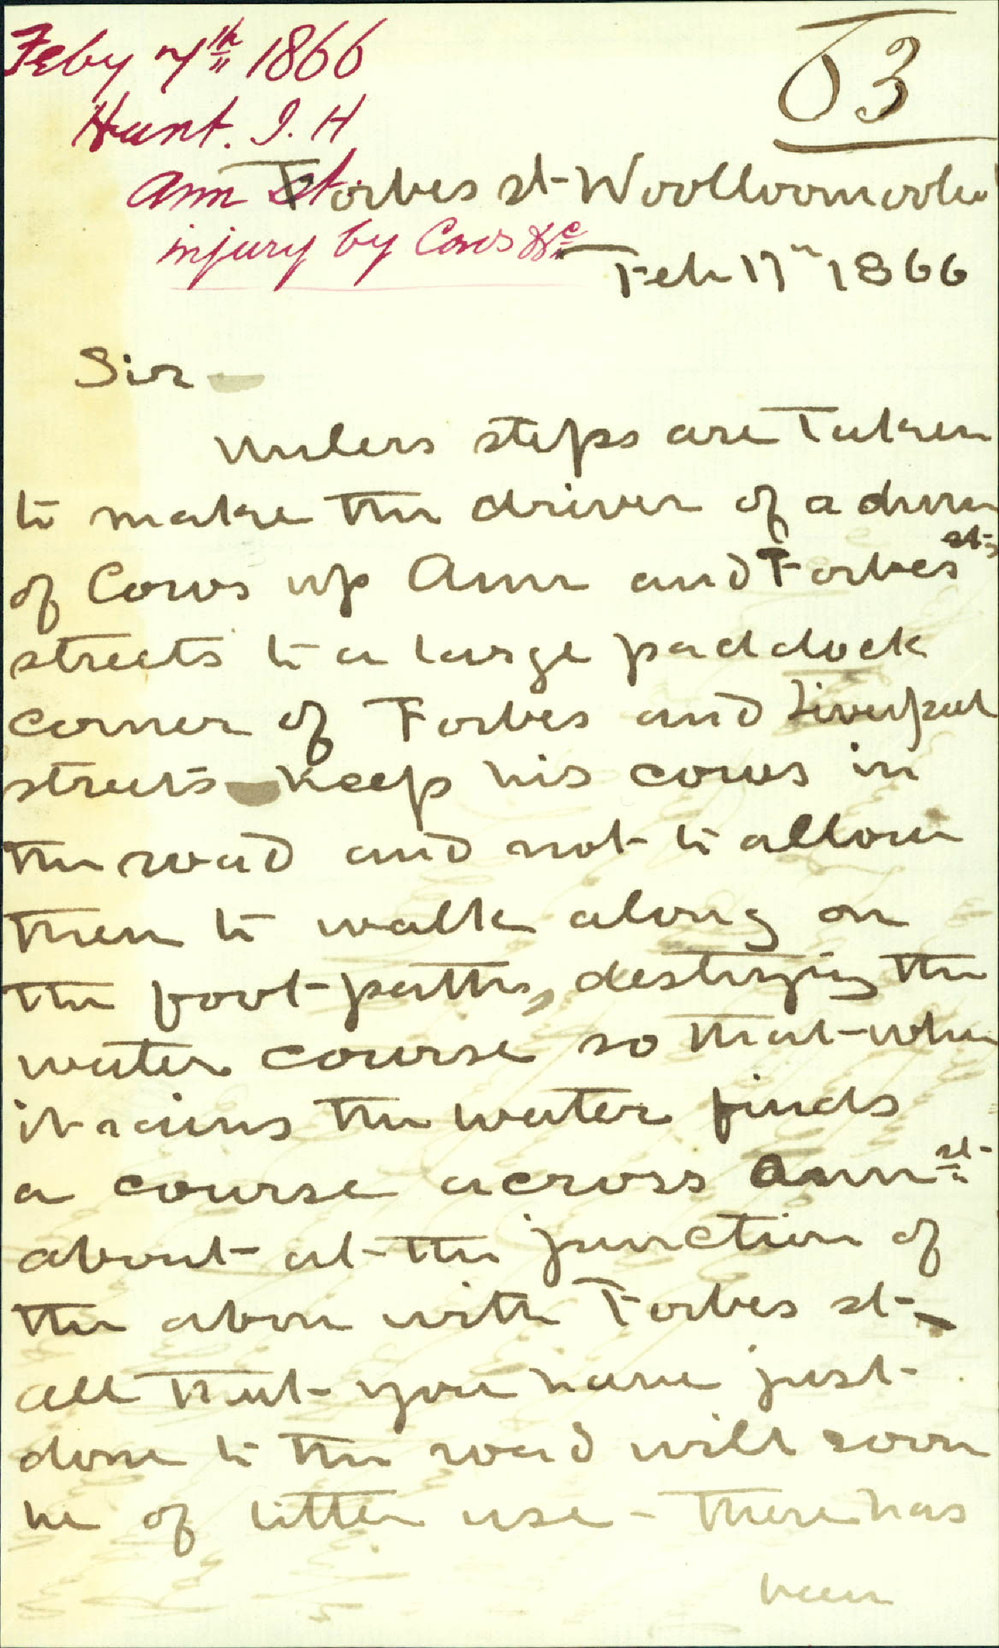 Feby 7th 1866
Hunt. J. H
Ann St.
injury by Cows &c
53
Forbes st Woolloomooloo
Feb 17th 1866
Sir
Unless steps are taken
to make the driver of a drove
of Cows up Ann and Forbes sts
streets to a large paddock
corner of Forbes and Liverpool
streets keep his cows in
the road and not to allow
them to walk along on
the foot-paths, destroying the
water course so that when
it rains the water finds
a course across Ann st
about at the junction of
the above with Forbes st-
all that you have just
done to the road will soon
be of little use - There has
been